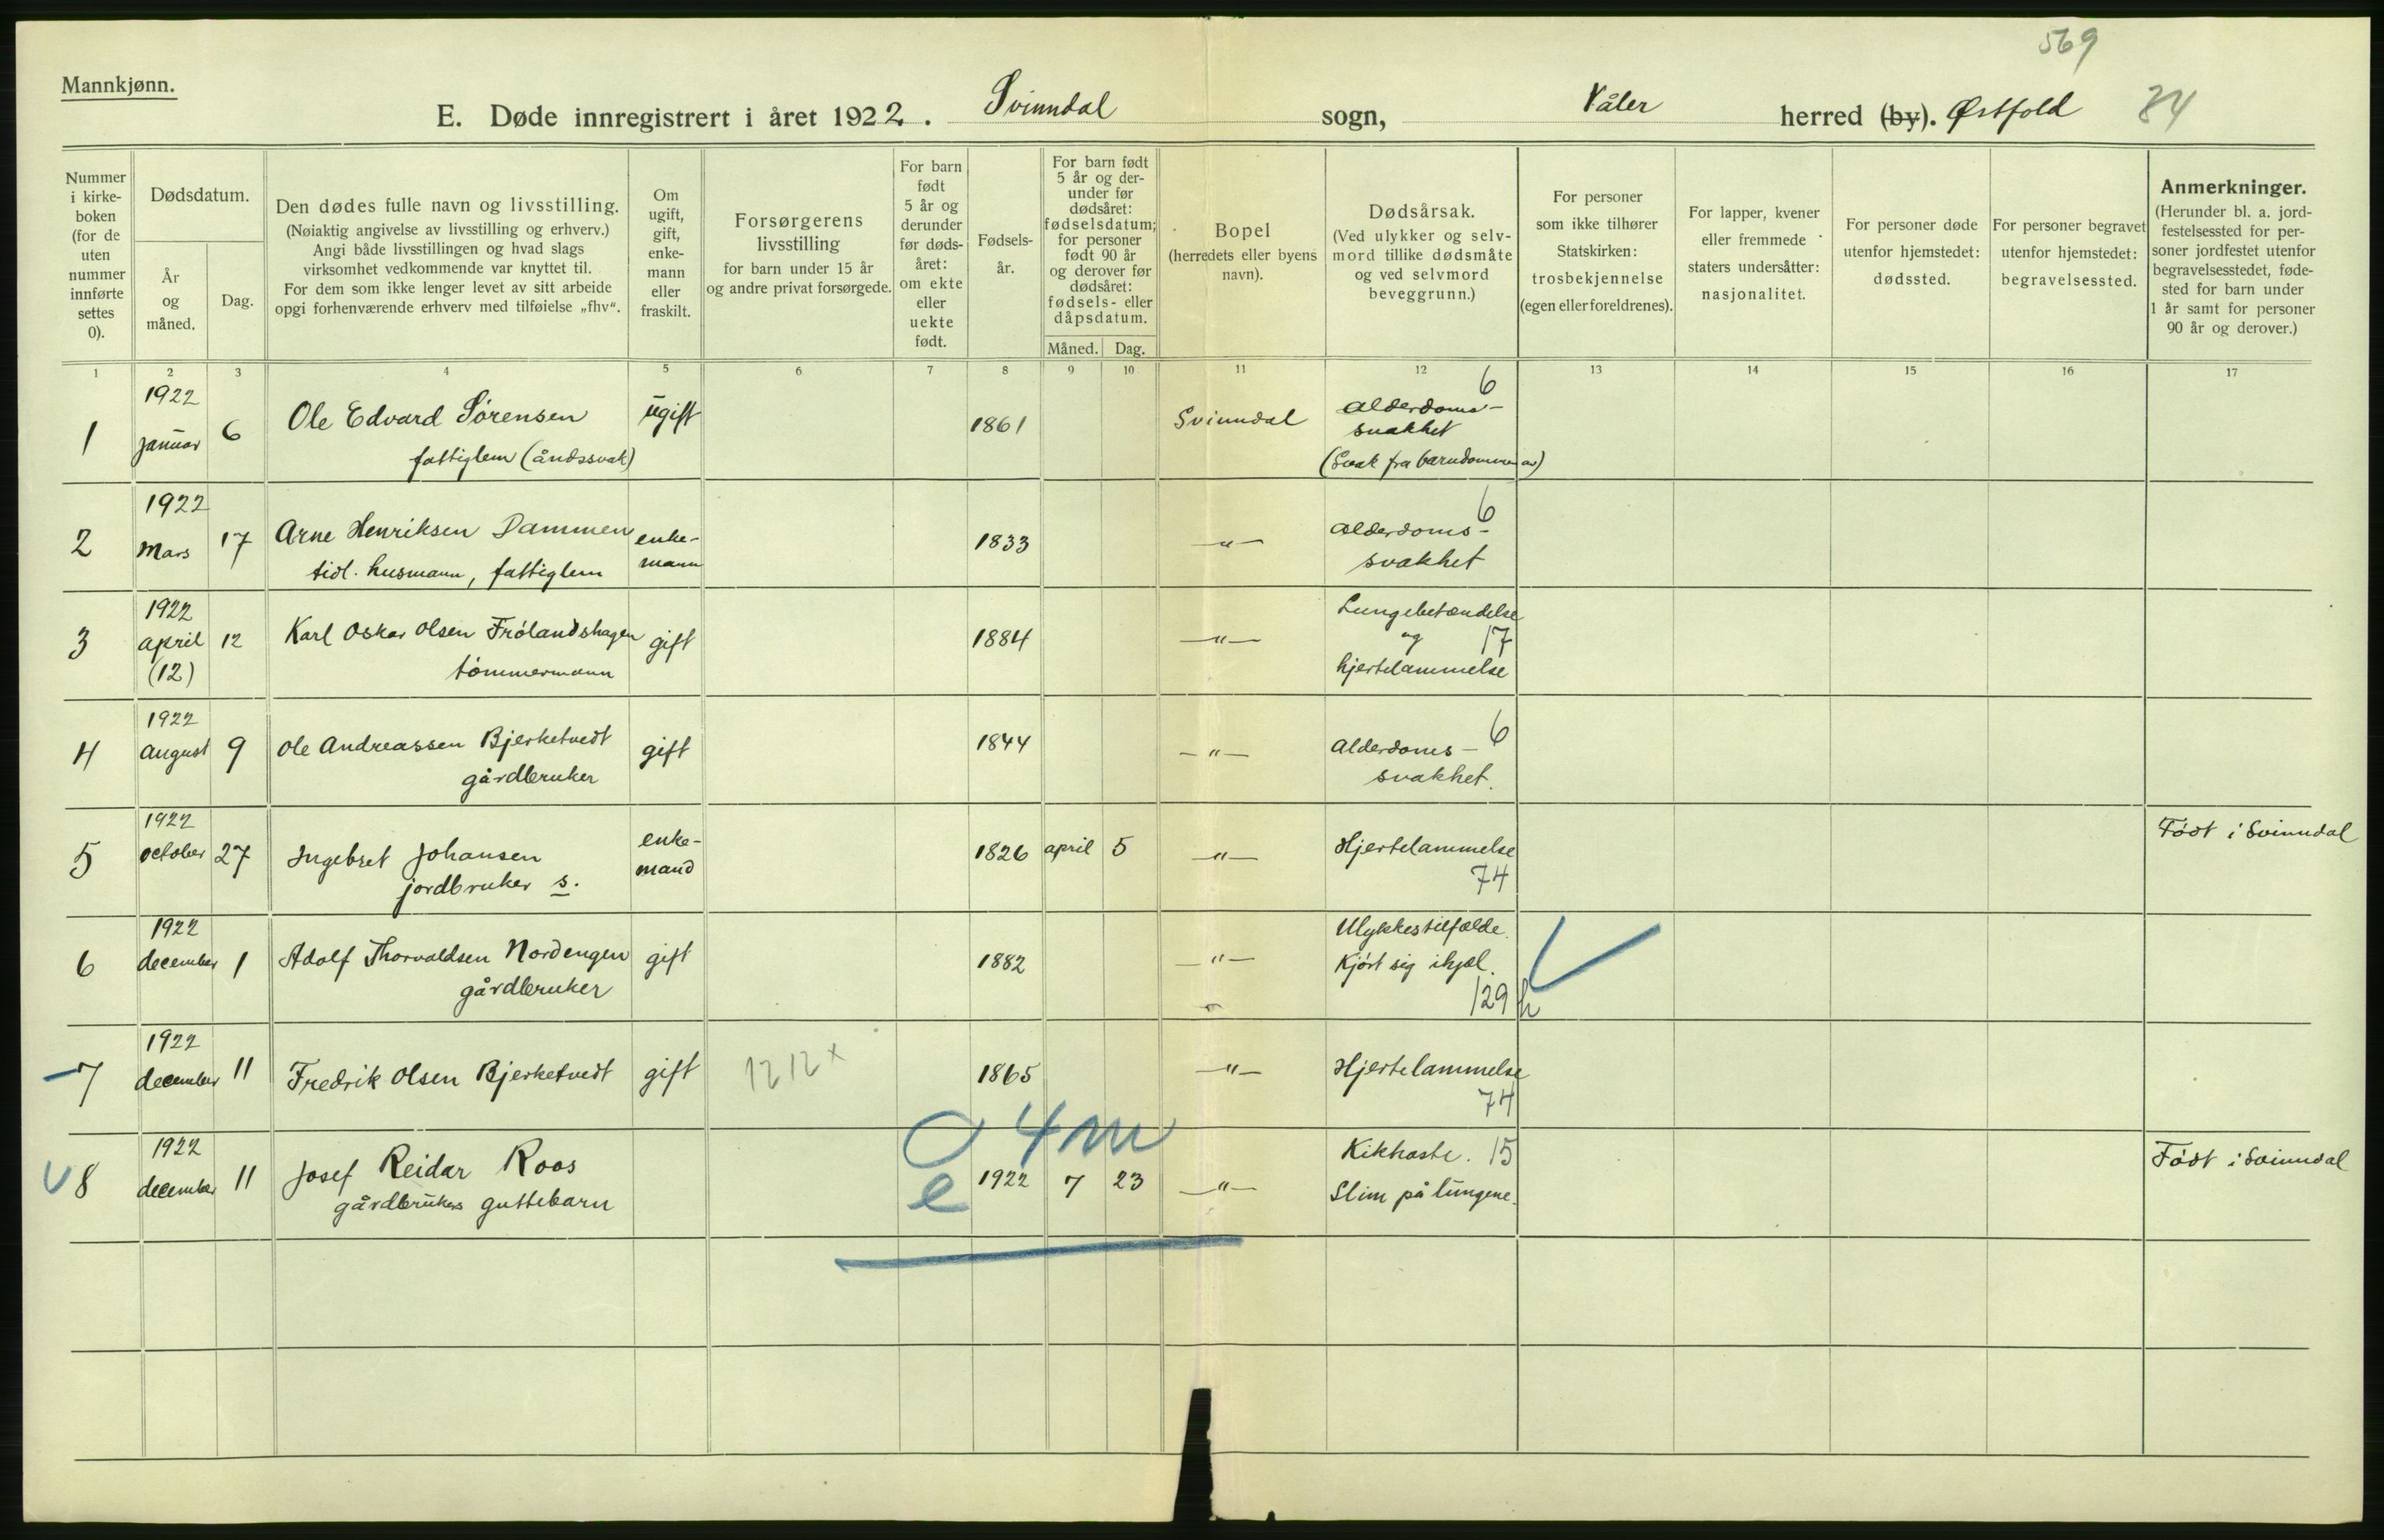 569
Mannkjønn.
E. Døde innregistrert i året 1922. Svinndal sogn, Våler herred (by). Østfold 84
Nummer i kirke-boken (for de uten nummer innførte settes 0).
Dødsdatum.
År og måned.
Dag.
Den dødes fulle navn og livsstilling.
(Nøiaktig angivelse av livsstilling og erhverv.)
Angi både livsstillingen og hvad slags
virksomhet vedkommende var knyttet til.
For dem som ikke lenger levet av sitt arbeide
opgi forhenværende erhverv med tilføielse „fhv“.
Om ugift, gift, enke-mann eller fraskilt.
Forsørgerens livsstilling
for barn under 15 år
og andre privat forsørgede.
For barn født 5 år og derunder før døds-året: om ekte eller uekte født.
Fødsels-år.
For barn født 5 år og der-under før dødsåret: fødselsdatum; for personer født 90 år og derover før dødsåret: fødsels- eller dåpsdatum.
Måned. Dag.
Bopel
(herredets eller byens navn).
Dødsårsak.
(Ved ulykker og selv-mord tillike dødsmåte og ved selvmord beveggrunn.)
For personer som ikke tilhører Statskirken: trosbekjennelse (egen eller foreldrenes).
For lapper, kvener eller fremmede staters undersåtter: nasjonalitet.
For personer døde utenfor hjemstedet: dødssted.
For personer begravet utenfor hjemstedet: begravelsessted.
Anmerkninger.
(Herunder bl. a. jord-festelsessted for per-soner jordfestet utenfor begravelsesstedet, føde-sted for barn under 1 år samt for personer 90 år og derover.)
1 2 3 4 5 6 7 8 9 10 11 12 13 14 15 16 17
1 1922 januar 6 Ole Edvard Sørensen ugift 1861 Svinndal Alderdoms- 6
fattiglem (åndssvak) svakhet
(Svak fra barndommen av)
2 1922 Mars 17 Arne Henriksen Dammen enke- 1833 —"— Alderdoms- 6
tidl. husmann, fattiglem mann svakhet
3 1922 april 12 Karl Oskar Olsen Frølandshagen gift 1884 —"— Lungebetændelse
(12) tømmermann og 17
hjertelammelse
4 1922 august 9 Ole Andreassen Bjerketvedt gift 1844 —"— Alderdoms- 6
gårdbruker svakhet.
5 1922 october 27 Ingebret Johansen enke- 1826 april 5 —"— Hjertelammelse Født i Svinndal
jordbruker s. mand 74
6 1922 december 1 Adolf Thorvaldsen Nordengen gift 1882 —"— Ulykkestilfælde.
gårdbruker Kjørt sig ihjel.
129 h
7 1922 december 11 Fredrik Olsen Bjerketvedt gift 1212 x 1865 —"— Hjertelammelse
74
4m
8 1922 december 11 Josef Reidar Roos e 1922 7 23 —"— Kikhoste. 15 Født i Svinndal
gårdbrukers guttebarn Slim på lungene.